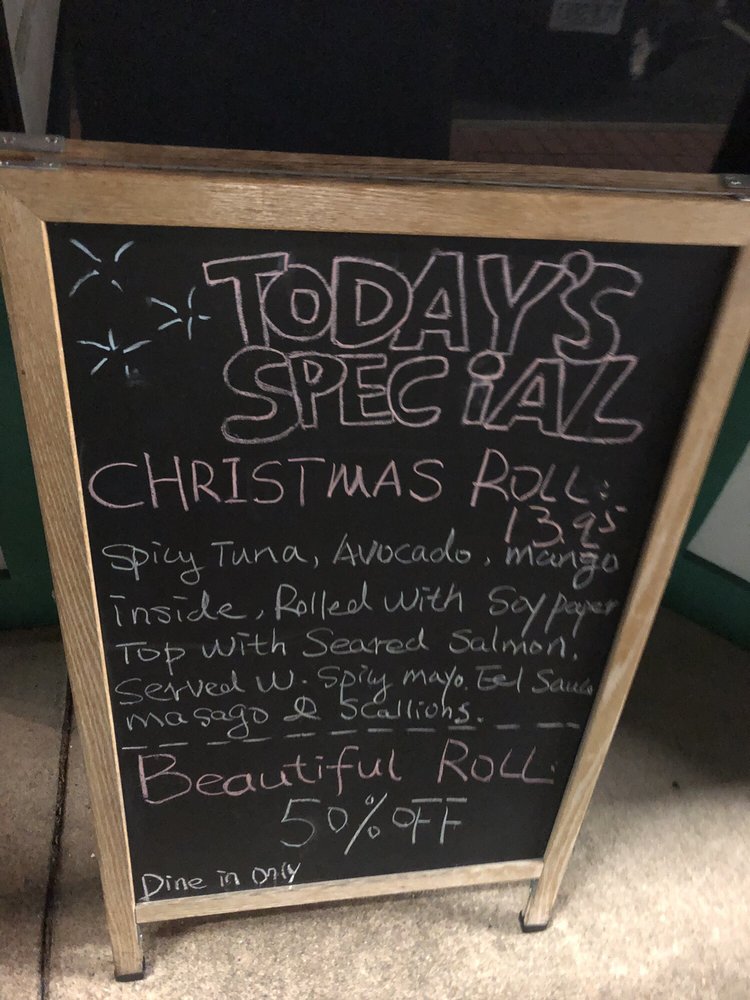 TODAY'S
SPECiAL
CHRISTMAS ROLL:
13.95
Spicy Tuna, Avocado, mango
inside, Rolled with Soy paper
Top with Seared Salmon.
Served w. Spicy mayo. Eel Sauce
masago & Scallions.
Beautiful ROLL:
50% OFF
Dine in Only